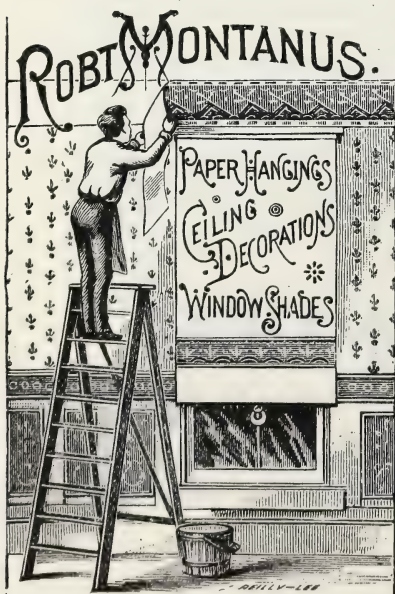 ROBT MONTANUS.
PAPER HANGINGS
CEILING
DECORATIONS
WINDOW SHADES
REILLY-LEE